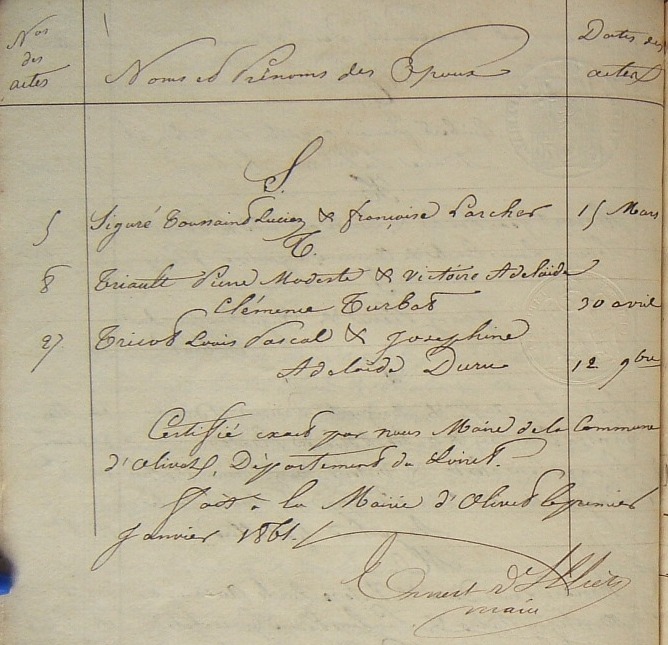 Nos des actes
Noms et Prénoms des Epoux
Dates des actes
S.
5 Siguré Toussaint Lucien & françoise Larcher 15 Mars
T.
8 Triault Pierre Modeste & Victoire Adelaïde
Clémence Turbat 30 avril
27 Tricot Louis Pascal & Joséphine
Adelaïde Duru 12 9bre
Certifié exact par nous Maire de la Commune
d'Olivet, Département du Loiret.
fait à la Mairie d'Olivet le premier
Janvier 1861.
Ernest d'Illiers
maire